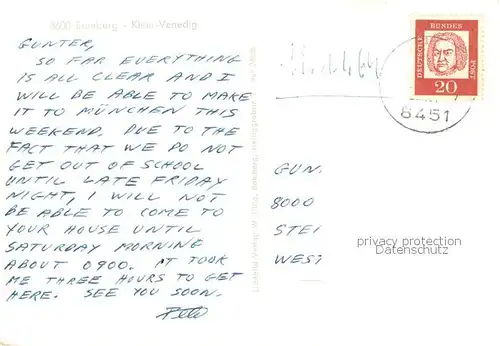 8600 Bamberg - Klein-Venedig
GUNTER,
SO FAR EVERYTHING
IS ALL CLEAR AND I
WILL BE ABLE TO MAKE
IT TO MÜNCHEN THIS
WEEKEND. DUE TO THE
FACT THAT WE DO NOT
GET OUT OF SCHOOL
UNTIL LATE FRIDAY
NIGHT, I WILL NOT
BE ABLE TO COME TO
YOUR HOUSE UNTIL
SATURDAY MORNING
ABOUT 0900. IT TOOK
ME THREE HOURS TO GET
HERE. SEE YOU SOON.
DEUTSCHE BUNDES POST
20
8451
GUN
8000
STEI
WEST
privacy protection
Datenschutz